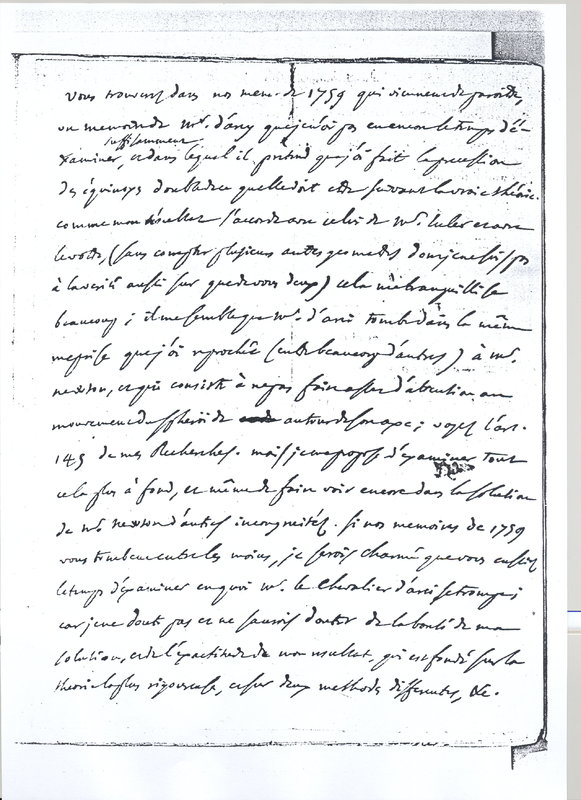 vous trouverez dans nos mem. de 1759 qui viennent de paroitre,
un memoire de Mr. d'arcy que je n'ai pas eu encore le temps d'é-
suffisamment
xaminer, et dans lequel il prétend que j'ai fait la precession
des équinoxes double de ce qu'elle doit etre suivant la vraie théorie.
comme mon résultat s'accorde avec celui de Mr. Euler et avec
le votre, (sans compter plusieurs autres geometres dont je ne suis pas
à la verité aussi sur que de vous deux) cela me tranquillise
beaucoup; il me semble que Mr. d'arci tombe dans la même
meprise que j'ai reprochée (entre beaucoup d'autres) à Mr.
newton, et qui consiste à n'e pas faire assez d'attention au
mouvement du spheroide autour de son axe; voyez l'art.
145 de mes Recherches. mais je me propose d'examiner tout
cela plus à fond, et même de faire voir encore dans la solution
de Mr. newton d'autres incongruités. si nos memoires de 1759
vous tombent entre les mains, je serois charmé que vous eussiez
le temps d'examiner en quoi Mr. le Chevalier d'arci se trompe;
car je ne doute pas et ne saurois douter de la bonté de ma
solution, et de l'exactitude de mon resultat, qui est fondé sur la
theorie la plus rigoureuse, et sur deux methodes differentes, &c.